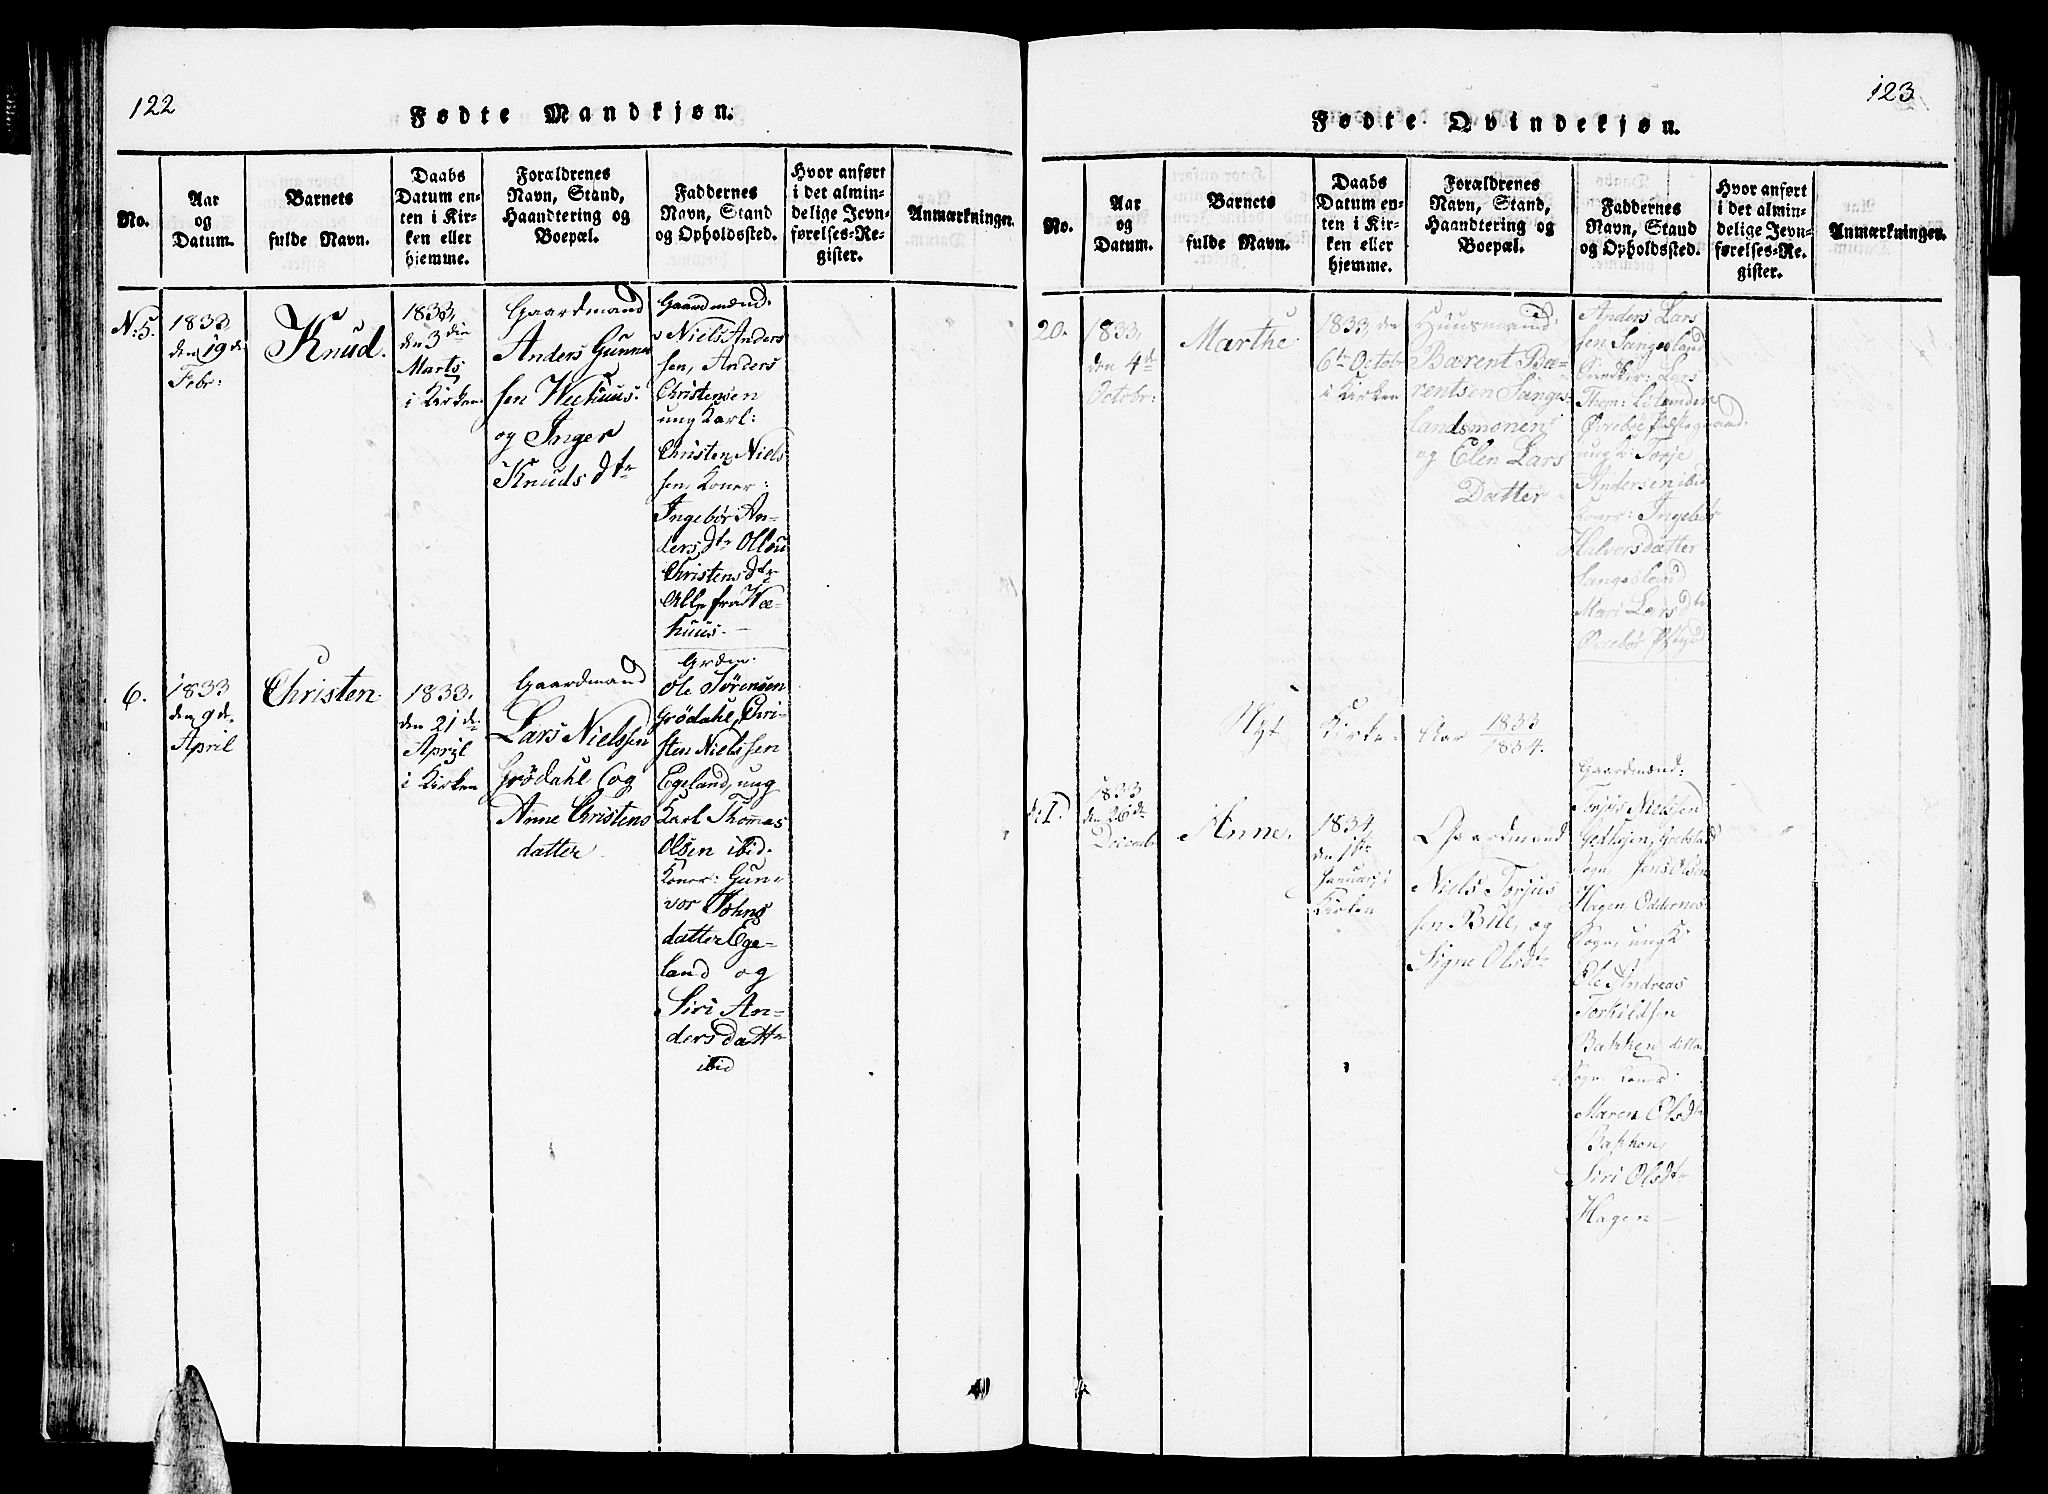 122
Fødte Mandkjøn.
No.
Aar
og
Datum.
Barnets
fulde Navn.
Daabs
Datum en-
ten i Kir-
ken eller
hjemme.
Forældrenes
Navn, Stand,
Haandtering og
Boepæl.
Faddernes
Navn, Stand
og Opholdssted.
Hvor anført
i det almin-
delige Jevn-
førelses-Re-
gister.
Anmærkninger.
N:5.
1833
den 19de
Febr:
Knud.
1833,
den 3die
Marts
i Kirken.
Gaardmand
Anders Gunner
sen Wehuus.
og Inger
Knudsdtr
Gaardmænd.
Niels Anders
sen, Anders
Christensen
ung Karl:
Christen Niels
sen, Koner:
Ingebør An-
dersdtr Ollou
Christensdtr
Alle fra We-
huus.
6.
1833
den 9de
April
Christen
1833.
den 21de
April
i Kirken
Gaardmand
Lars Nielssen
Grödahl og
Anne Christens
datter
Grdm:
Ole Sørensen
Grödahl, Chri-
sten Nielssen
Egeland, ung
Karl Thomas
Olsen ibid.
Koner: Gun-
vor Johns
datter Ege-
land og
Siri An-
dersdattr
ibid
123
Fødte Qvindekjøn.
No.
Aar
og
Datum.
Barnets
fulde Navn.
Daabs
Datum en-
ten i Kir-
ken eller
hjemme.
Forældrenes
Navn, Stand,
Haandtering og
Boepæl.
Faddernes
Navn, Stand
og Opholdssted.
Hvor anført
i det almin-
delige Jevn-
førelses-Re-
gister.
Anmærkninger.
20.
1833,
den 4de
Octobr:
Marthe
1833, den
6te Octobr
i Kirken
Huusmand
Bærent Bæ-
rentsen Sanges-
landsmonen
og Elen Lars
Datter
Anders Lars
sen Sangesland
Lars
Thom:
Øvrebøe
ung K: Torje
Andersen ibid
Koner: Ingebør
Halvorsdatter
Sangesland
Mari Larsdtr
Øvrebøe
Nyt Kirke- Aar 1833
1834.
N:1.
1833
den 26de
Decembr
Anne.
1834,
den 1ste
Januar i
Kirken
Gaardmand
Niels Torjus
sen Bue, og
Signe Olsdtr
Gaardmænd:
Torjus Nielssen
Sogn, Jens Olsen
Hagen Oddernes
Sogn, ung K:
Ole Andreas
Torkildsen
Bakken ditto
Sogn, Koner:
Maren Olsdtr
Bakken,
Siri Olsdtr
Hagen